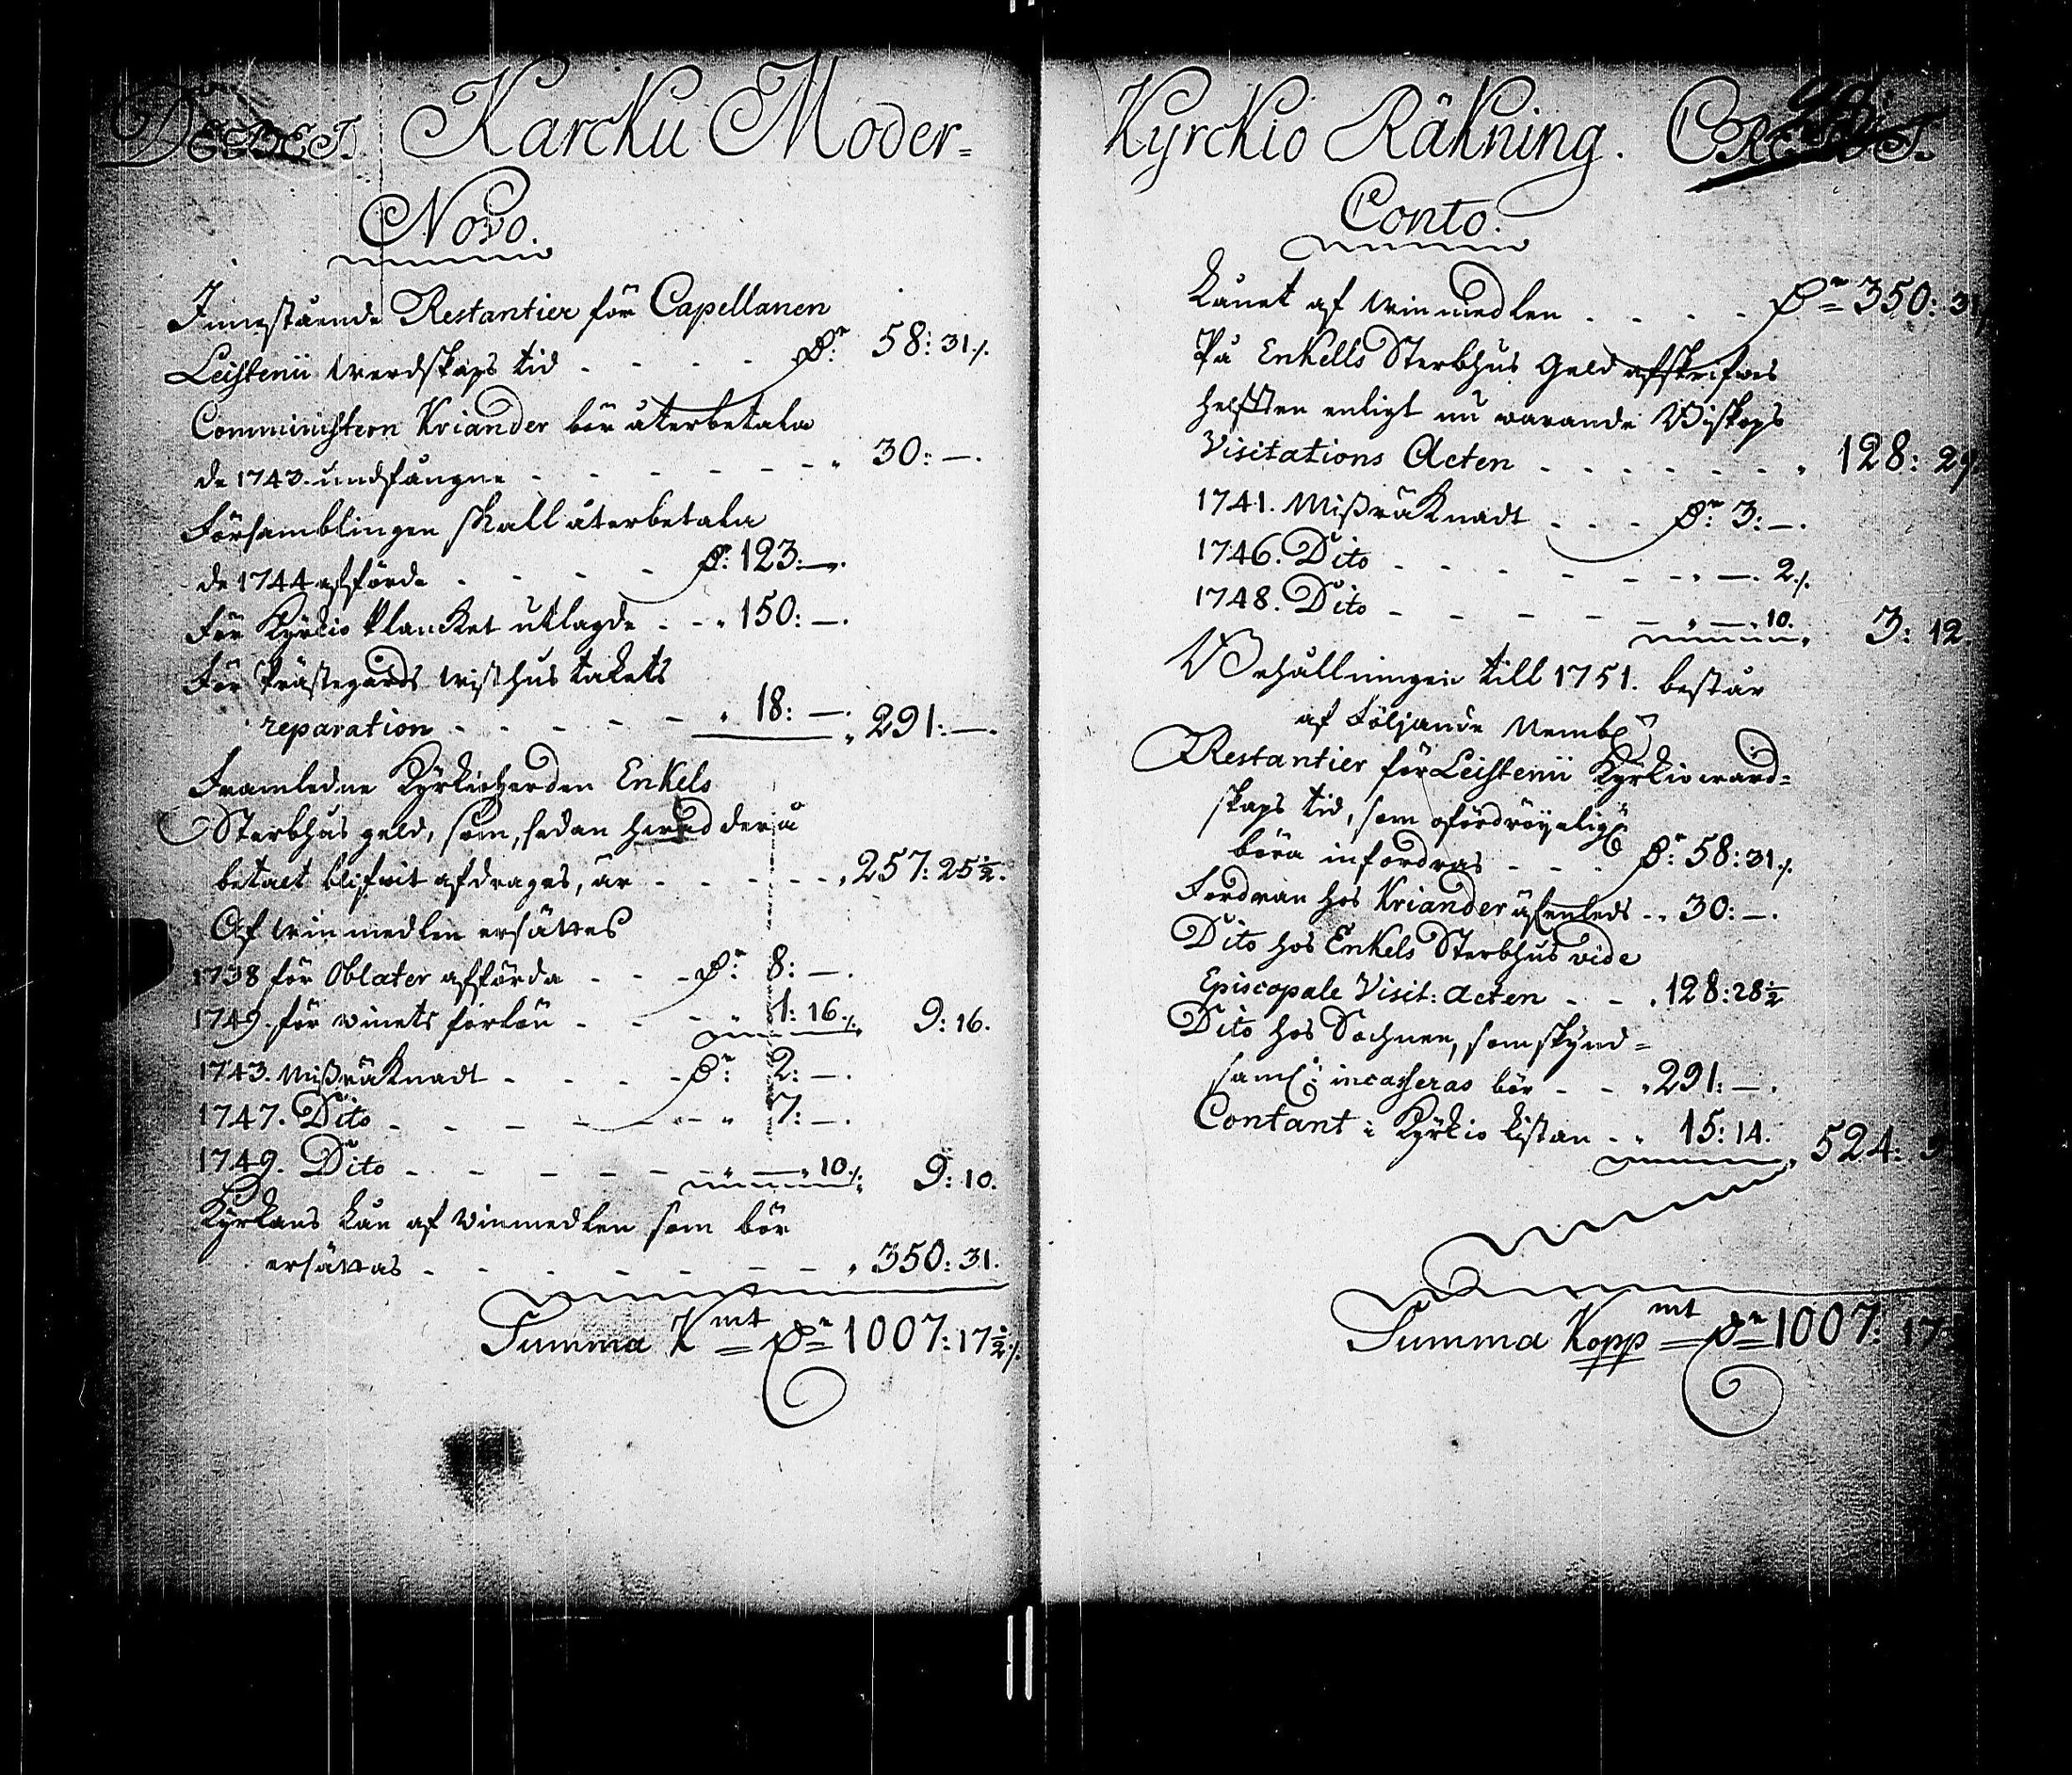 DEBET Karcku Moder=
Novo.
Innestående Restantier för Capellanen
Leistenii werdskaps tid - - - - Dr: 58: 31./.
Comministern Kriander bör återbetala
de 1743 undfångne - - - - - - - " 30: —.
Församblingen skall återbetala
de 1744 afförde - - - - Dr: 123: —.
För Kyrkio Plancket utlagde - - " 150: —.
För Prästegårds wisthus takets
reparation - - - - - " 18: —. " 291: —.
Framledne Kyrkioherden Enkels
Sterbhus geld, som, sedan
betalt blifwit afdrages, är - - - - - " 257: 25½.
Af win medlen ersättes
1738 för Oblater afförda - - - Dr: 8: —.
1749. för vinets förlön - - - 1: 16./. 9: 16.
1743. Missräknadt - - - - Dr: 2: —.
1747. Dito - - - - - - - " 7: —.
1749. Dito - - - - - - - " —. 10./. 9: 10.
Kyrkans lån af Vinmedlen som bör
ersättas - - - - - - - " 350: 31.
Summa K mt = Dr 1007: 17½./.
Kyrckio Räkning. CREDIT.
Conto.
Lånet af win medlen - - - - Dr 350: 31
På Enkells Sterbhus Geld afskrifves
helften enligt nu warande Biskops
Visitations Acten - - - - - - - " 128: 29
1741. Missräknadt - - - Dr: 3: —.
1746. Dito - - - - - - - " —. 2./.
1748. Dito - - - - - - " —. 10. 3: 12
Behållningen till 1751. består
af Följande Nembl:
Restantier för Leistenii Kyrkio ward=
skaps tid, som ofördröyelig:
böra infordras - - - Dr: 58: 31./.
Fordran hos Kriander - - " 30: —.
Dito hos Enkels Sterbhus vide
Episcopale Visit: Acten - - . 128: 28½
Dito hos Sochnen, som skynd=
saml: incasseras bör - - " 291: —.
Contant i Kyrkio kistan - - " 15: 14. " 524:
Summa Kopp mt = Dr 1007: 17